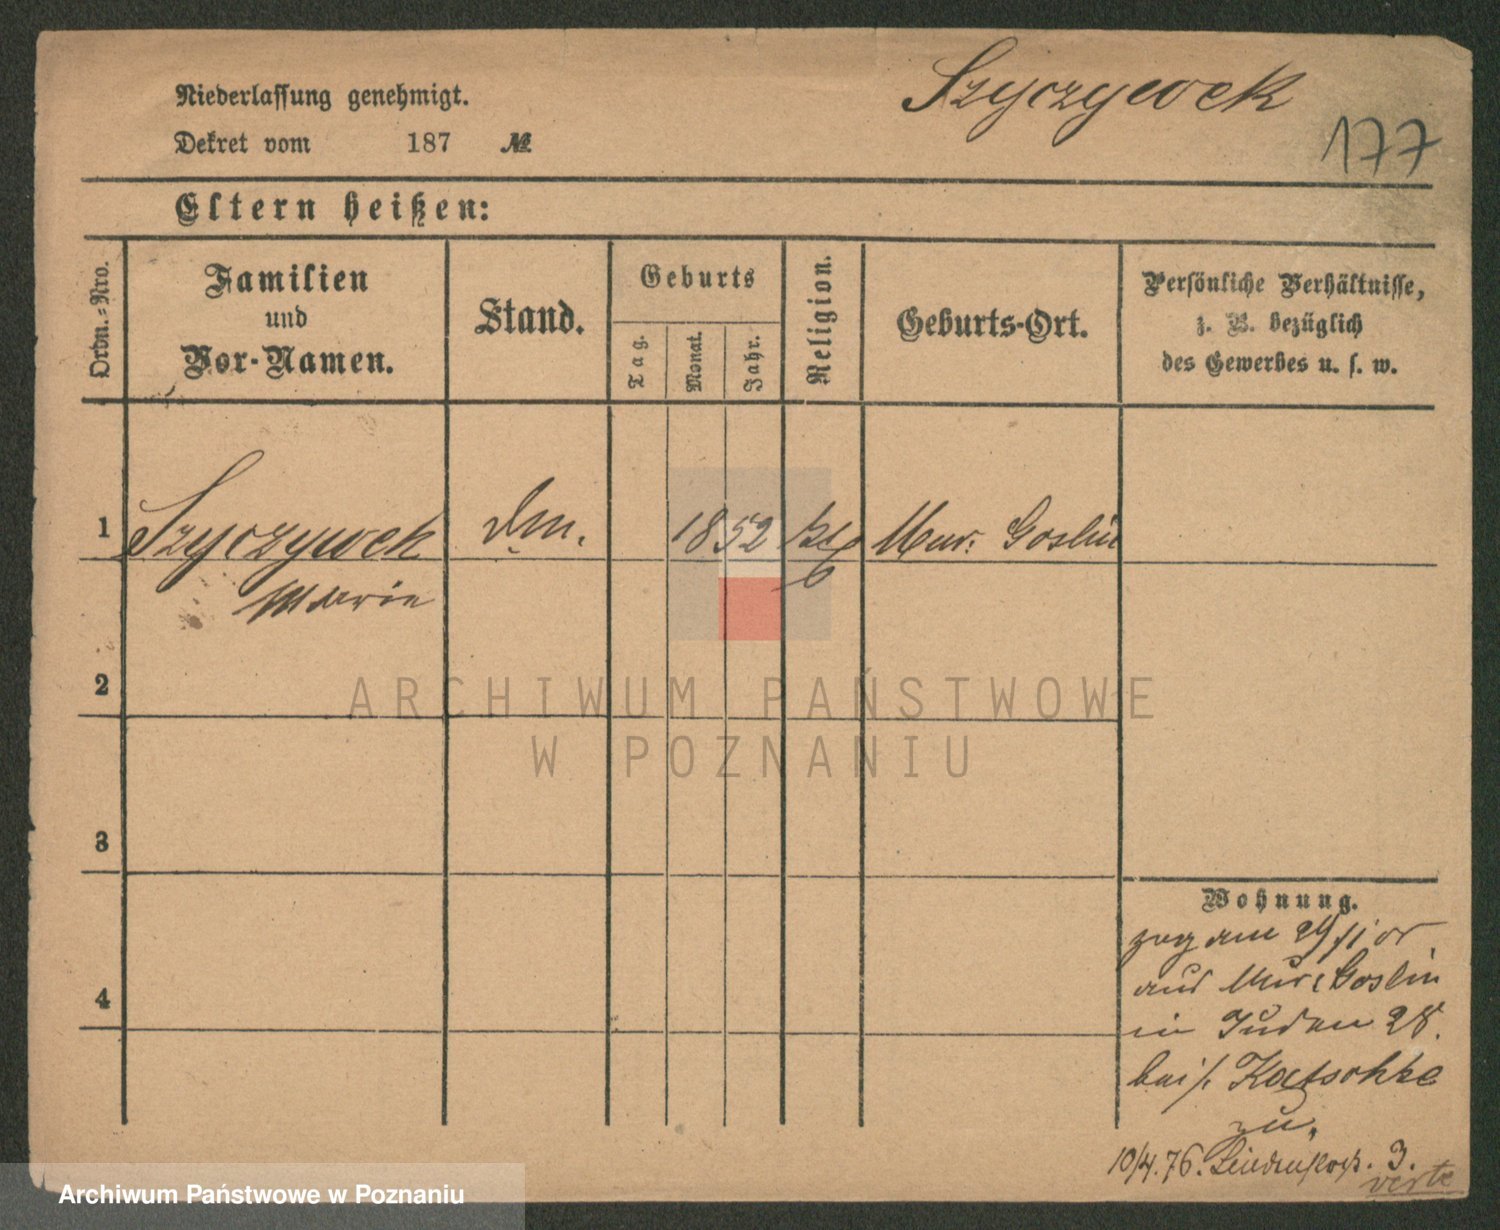 Szyczywek
177
Niederlassung genehmigt.
Dekret vom 187 №
Eltern heißen:
Ordn.-Nro.
Familien
und
Vor-Namen.
Stand.
Geburts
Tag.
Monat.
Jahr.
Religion.
Geburts-Ort.
Persönliche Verhältnisse,
z. B. bezüglich
des Gewerbes u. s. w.
1 Szyczywek 1852 Mur. Goslin
Marie
2
3
4
Wohnung.
zog am 29/1 cr.
aus Mur. Goslin
in Juden 28.
bei Katschke
zu.
10/4.76. 3.
verte
ARCHIWUM PAŃSTWOWE
W POZNANIU
Archiwum Państwowe w Poznaniu